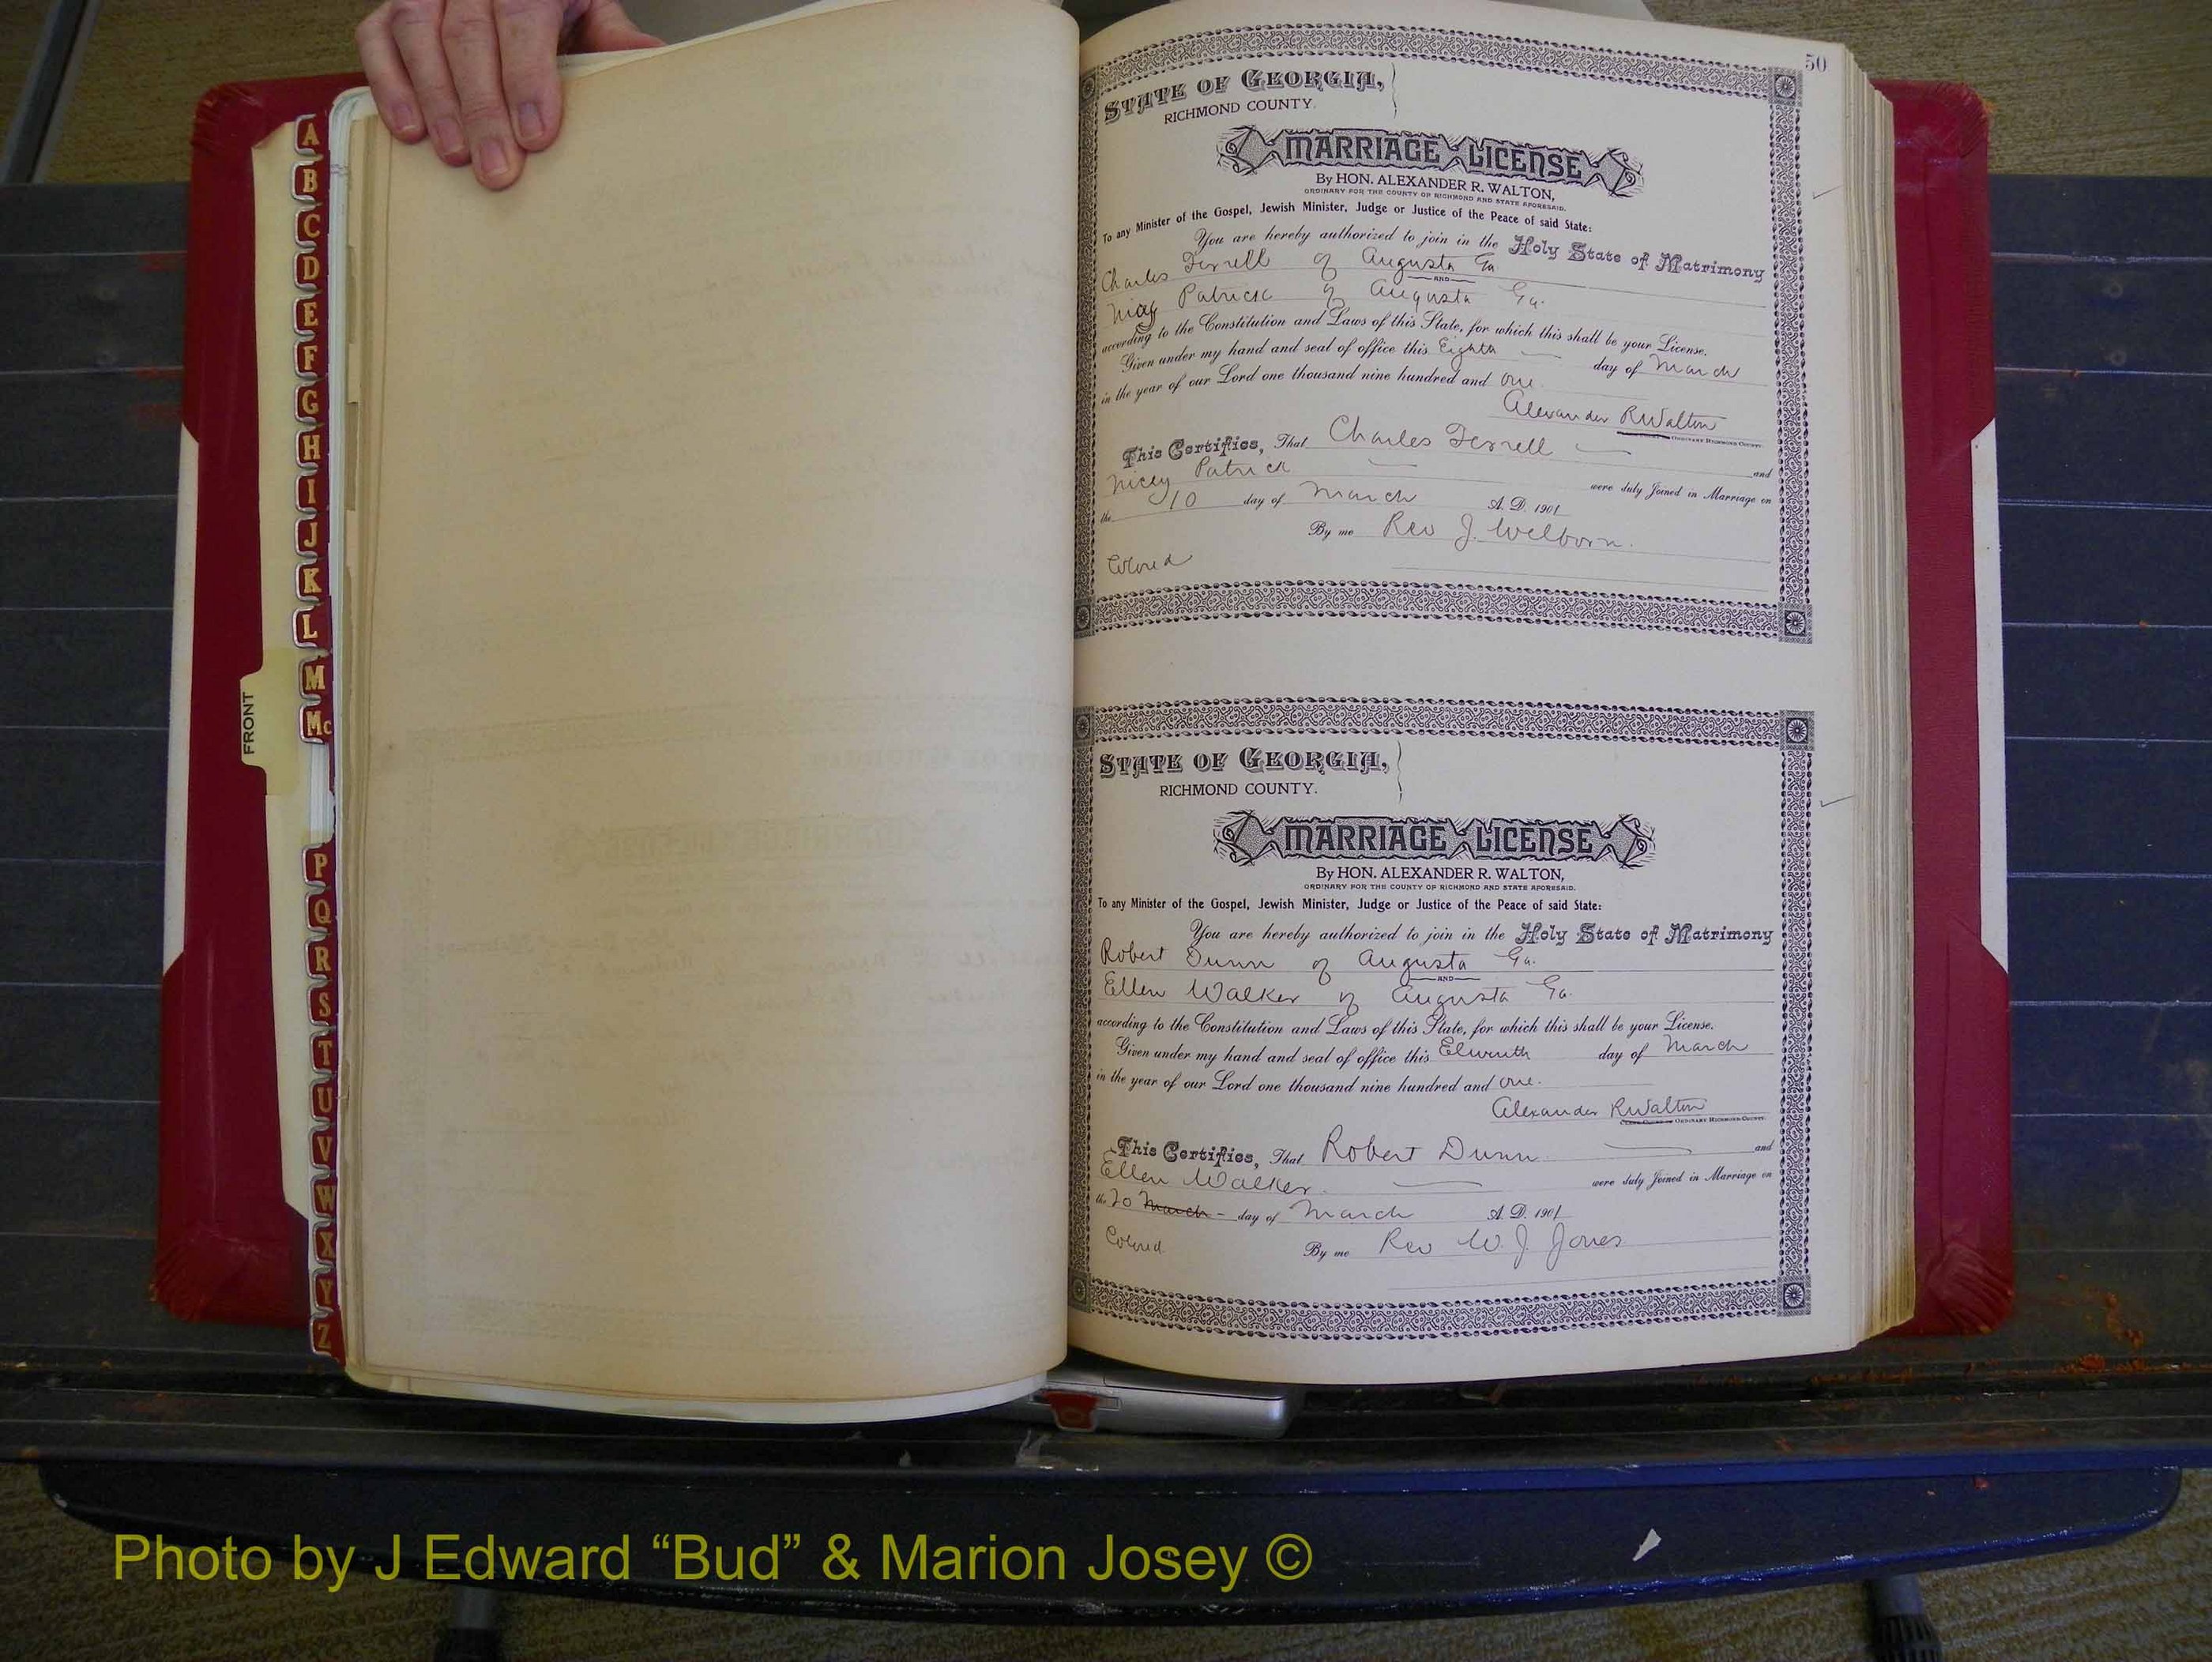 50
STATE OF GEORGIA,
RICHMOND COUNTY.
MARRIAGE LICENSE
By HON. ALEXANDER R. WALTON,
ORDINARY FOR THE COUNTY OF RICHMOND AND STATE AFORESAID.
To any Minister of the Gospel, Jewish Minister, Judge or Justice of the Peace of said State:
You are hereby authorized to join in the Holy State of Matrimony
Charles Terrell of Augusta Ga
AND
Nicey Patrick of Augusta Ga.
according to the Constitution and Laws of this State, for which this shall be your License.
Given under my hand and seal of office this Eighth day of March
in the year of our Lord one thousand nine hundred and one.
Alexander R Walton
ORDINARY RICHMOND COUNTY.
This Certifies, That Charles Terrell and
Nicey Patrick were duly Joined in Marriage on
the 10 day of March A. D. 1901
By me Rev J. Welborn.
Colored
STATE OF GEORGIA,
RICHMOND COUNTY.
MARRIAGE LICENSE
By HON. ALEXANDER R. WALTON,
ORDINARY FOR THE COUNTY OF RICHMOND AND STATE AFORESAID.
To any Minister of the Gospel, Jewish Minister, Judge or Justice of the Peace of said State:
You are hereby authorized to join in the Holy State of Matrimony
Robert Dunn of Augusta Ga.
AND
Ellen Walker of Augusta Ga.
according to the Constitution and Laws of this State, for which this shall be your License.
Given under my hand and seal of office this Eleventh day of March
in the year of our Lord one thousand nine hundred and one.
Alexander R Walton
ORDINARY RICHMOND COUNTY.
This Certifies, That Robert Dunn and
Ellen Walker were duly Joined in Marriage on
the 20 March - day of March A. D. 1901
Colored By me Rev W. J. Jones
A
B
C
D
E
F
G
H
I
J
K
L
M
Mc
FRONT
P
Q
R
S
T
U
V
W
X
Y
Z
Photo by J Edward “Bud” & Marion Josey ©